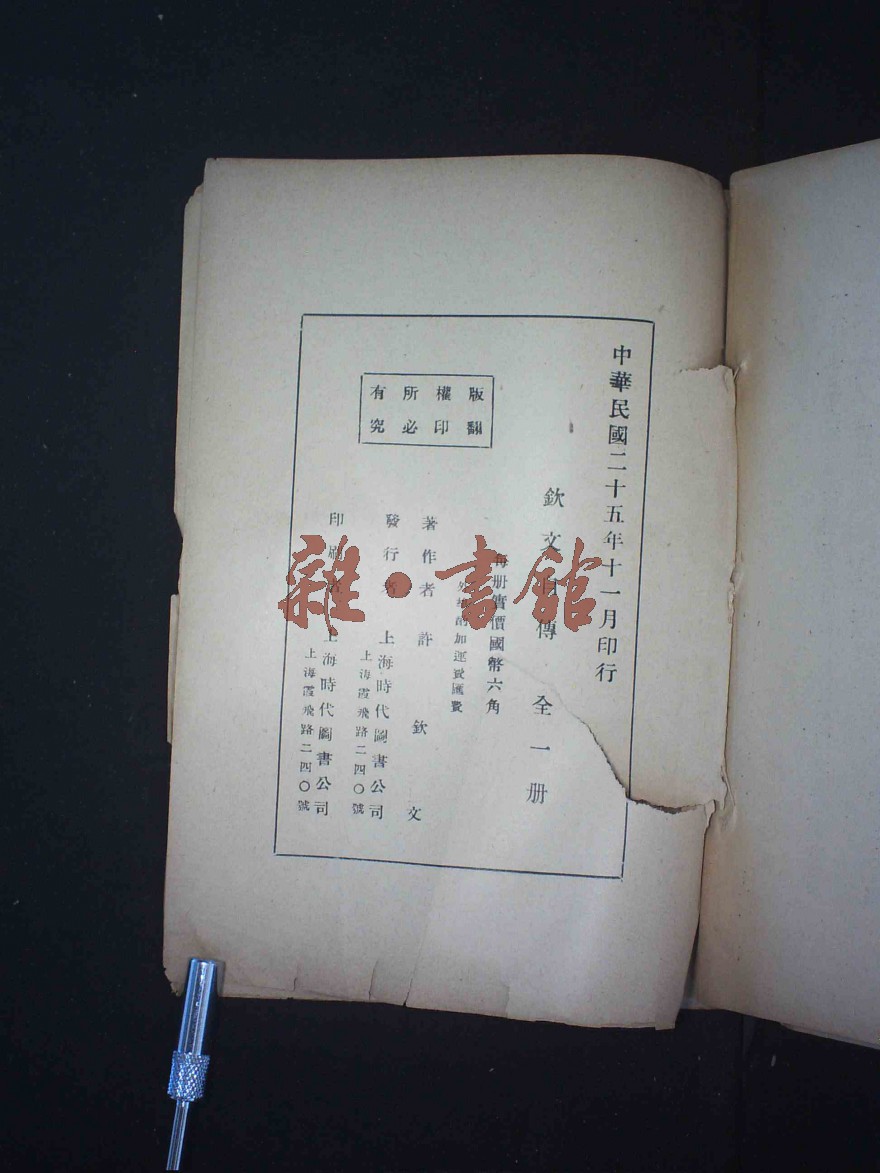 中華民國二十五年十一月印行
欽文自傳 全一册
每册實價國幣六角
外埠酌加運費匯費
著作者 許欽文
發行者 上海時代圖書公司
上海霞飛路二四〇號
印刷者 上海時代圖書公司
上海霞飛路二四〇號
版權所有
翻印必究
雜·書館